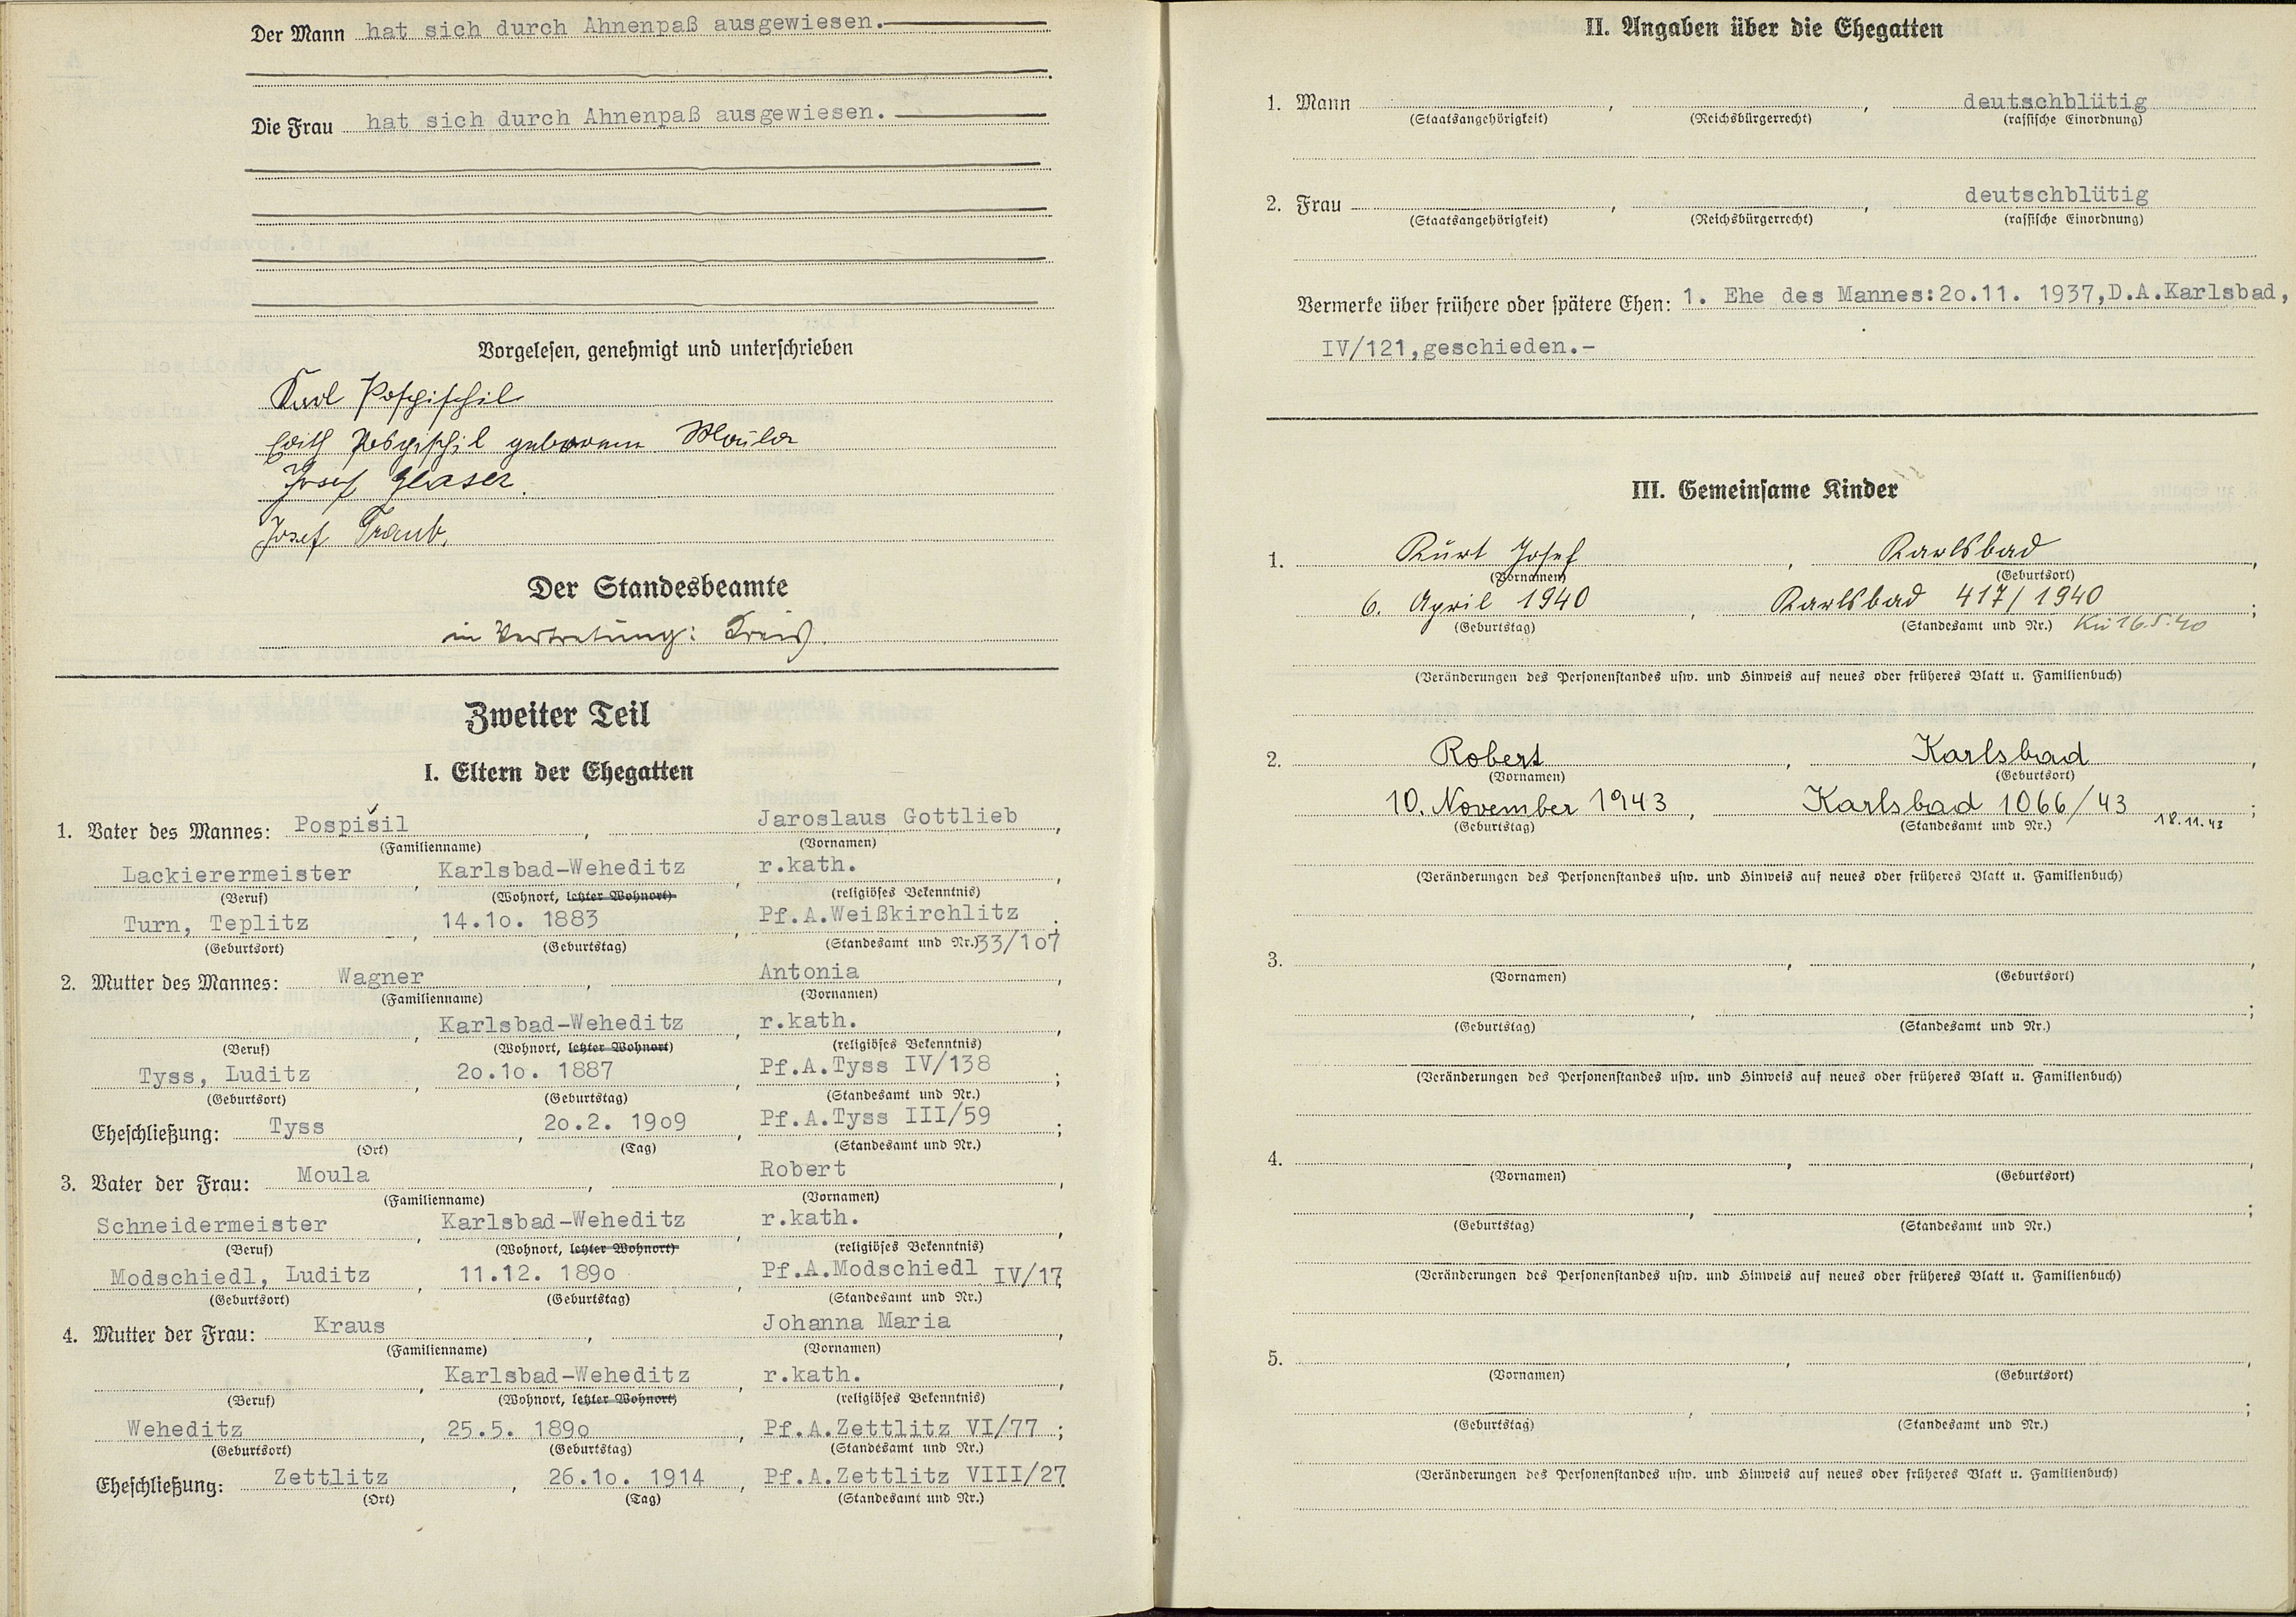 Der Mann hat sich durch Ahnenpaß ausgewiesen.
Die Frau hat sich durch Ahnenpaß ausgewiesen.
Vorgelesen, genehmigt und unterschrieben
Karl Pospischil
Edith Pospischil geborene Moula
Josef Glaser.
Josef Traub.
Der Standesbeamte
in Vertretung: Kreis.
Zweiter Teil
I. Eltern der Ehegatten
1. Vater des Mannes: Pospišil, Jaroslaus Gottlieb,
(Familienname) (Vornamen)
Lackierermeister, Karlsbad-Weheditz, r.kath.,
(Beruf) (Wohnort, letzter Wohnort) (religiöses Bekenntnis)
Turn, Teplitz, 14.1o. 1883, Pf.A.Weißkirchlitz;
(Geburtsort) (Geburtstag) (Standesamt und Nr.) 33/1o7
2. Mutter des Mannes: Wagner, Antonia,
(Familienname) (Vornamen)
, Karlsbad-Weheditz, r.kath.,
(Beruf) (Wohnort, letzter Wohnort) (religiöses Bekenntnis)
Tyss, Luditz, 2o.1o. 1887, Pf.A.Tyss IV/138;
(Geburtsort) (Geburtstag) (Standesamt und Nr.)
Eheschließung: Tyss, 2o.2. 19o9, Pf.A.Tyss III/59;
(Ort) (Tag) (Standesamt und Nr.)
3. Vater der Frau: Moula, Robert,
(Familienname) (Vornamen)
Schneidermeister, Karlsbad-Weheditz, r.kath.,
(Beruf) (Wohnort, letzter Wohnort) (religiöses Bekenntnis)
Modschiedl, Luditz, 11.12. 189o, Pf.A.Modschiedl IV/17;
(Geburtsort) (Geburtstag) (Standesamt und Nr.)
4. Mutter der Frau: Kraus, Johanna Maria,
(Familienname) (Vornamen)
, Karlsbad-Weheditz, r.kath.,
(Beruf) (Wohnort, letzter Wohnort) (religiöses Bekenntnis)
Weheditz, 25.5. 189o, Pf.A.Zettlitz VI/77;
(Geburtsort) (Geburtstag) (Standesamt und Nr.)
Eheschließung: Zettlitz, 26.1o. 1914, Pf.A.Zettlitz VIII/27.
(Ort) (Tag) (Standesamt und Nr.)
II. Angaben über die Ehegatten
1. Mann , , deutschblütig
(Staatsangehörigkeit) (Reichsbürgerrecht) (rassische Einordnung)
2. Frau , , deutschblütig
(Staatsangehörigkeit) (Reichsbürgerrecht) (rassische Einordnung)
Vermerke über frühere oder spätere Ehen: 1. Ehe des Mannes:2o.11. 1937,D.A.Karlsbad,
IV/121,geschieden.-
III. Gemeinsame Kinder
1. Kurt Josef, Karlsbad,
(Vornamen) (Geburtsort)
6. April 1940, Karlsbad 417/1940;
(Geburtstag) (Standesamt und Nr.) 16.5.40
(Veränderungen des Personenstandes usw. und Hinweis auf neues oder früheres Blatt u. Familienbuch)
2. Robert, Karlsbad,
(Vornamen) (Geburtsort)
10. November 1943, Karlsbad 1066/43;
(Geburtstag) (Standesamt und Nr.) 18.11.43
(Veränderungen des Personenstandes usw. und Hinweis auf neues oder früheres Blatt u. Familienbuch)
3. , ,
(Vornamen) (Geburtsort)
, ;
(Geburtstag) (Standesamt und Nr.)
(Veränderungen des Personenstandes usw. und Hinweis auf neues oder früheres Blatt u. Familienbuch)
4. , ,
(Vornamen) (Geburtsort)
, ;
(Geburtstag) (Standesamt und Nr.)
(Veränderungen des Personenstandes usw. und Hinweis auf neues oder früheres Blatt u. Familienbuch)
5. , ,
(Vornamen) (Geburtsort)
, ;
(Geburtstag) (Standesamt und Nr.)
(Veränderungen des Personenstandes usw. und Hinweis auf neues oder früheres Blatt u. Familienbuch)